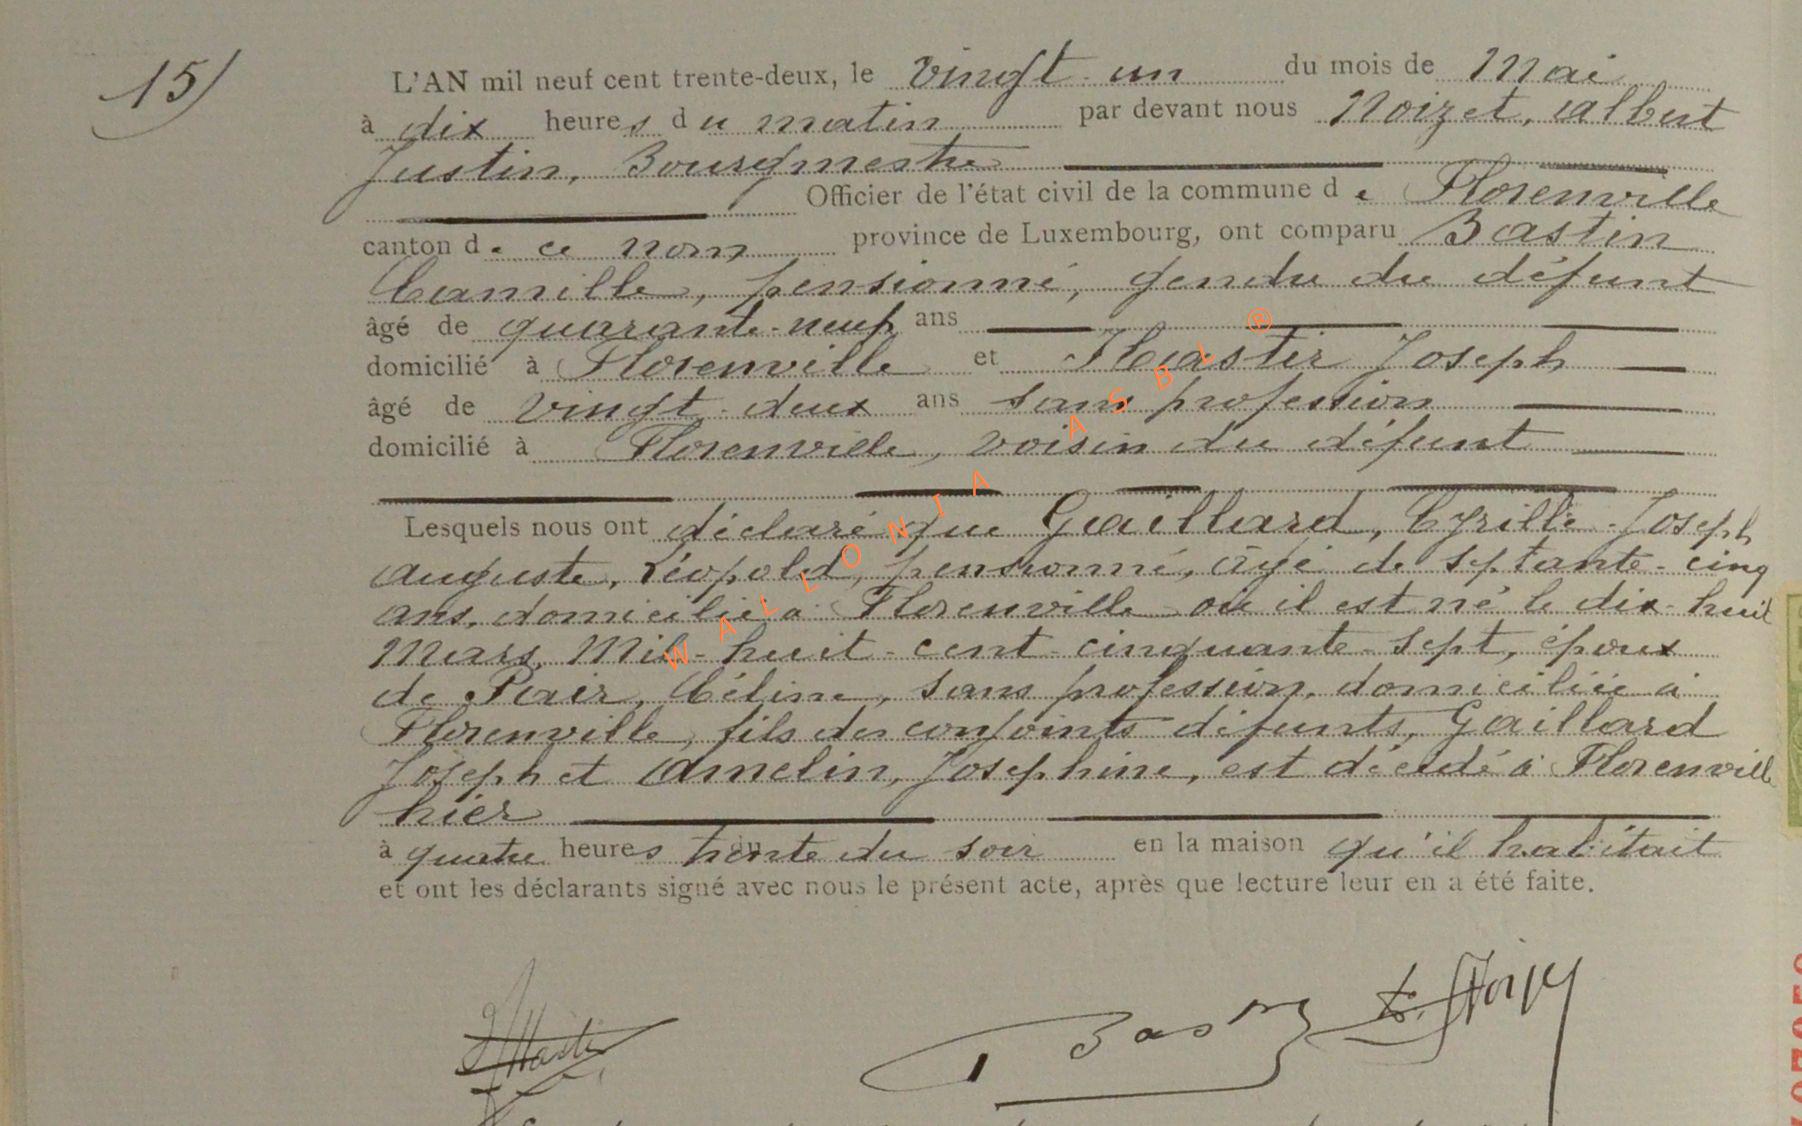 15)
L'AN mil neuf cent trente-deux, le vingt-un du mois de Mai
à dix heures du matin par devant nous Noizet, Albert
Justin, Bourgmestre
Officier de l'état civil de la commune de Florenville
canton de ce nom province de Luxembourg, ont comparu Bastin
Camille, pensionné, gendre du défunt
âgé de quarante-neuf ans
domicilié à Florenville et Hastir Joseph
âgé de vingt-deux ans sans profession
domicilié à Florenville, voisin du défunt
Lesquels nous ont déclaré que Gaillard, Cyrille-Joseph
Auguste, Léopold, pensionné, âgé de septante-cinq
ans, domicilié à Florenville où il est né le dix-huit
Mars, Mil-huit-cent-cinquante-sept, époux
de Pair, Céline, sans profession, domiciliée à
Florenville, fils des conjoints défunts, Gaillard
Joseph et Amelin, Josephine, est décédé à Florenville
hier
à quatre heures trente du soir en la maison qu'il habitait
et ont les déclarants signé avec nous le présent acte, après que lecture leur en a été faite.
WALLONIA ASBL ®
Bastin